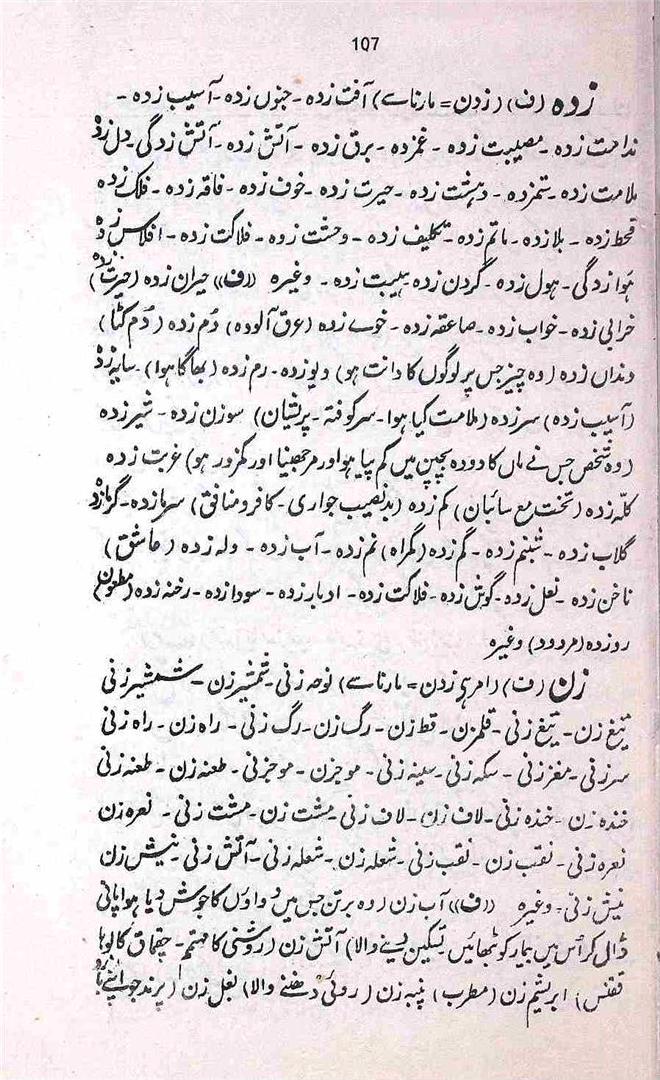 107
زدہ (ف) (زدن = مارنا سے) آفت زدہ - جنوں زدہ - آسیب زدہ -
ندامت زدہ - مصیبت زدہ - غمزدہ - برق زدہ - آتش زدہ - آتش زدگی - دل زدہ
ملامت زدہ - ستمزدہ - دہشت زدہ - حیرت زدہ - خوف زدہ - فاقہ زدہ - فلک زدہ
قحط زدہ - بلا زدہ - ماتم زدہ - تکلیف زدہ - وحشت زدہ - فلاکت زدہ - افلاس زدہ
ہوا زدگی - ہول زدہ - گردن زدہ - ہیبت زدہ - وغیرہ ((ف)) حیران زدہ (حیرت زدہ)
خرابی زدہ - خواب زدہ - صاعقہ زدہ - خوے زدہ (عرق آلودہ) دُم زدہ (دُم کٹا)
دنداں زدہ (وہ چیز جس پر لوگوں کا دانت ہو) دیو زدہ - رم زدہ (بھاگا ہوا) - سایہ زدہ
(آسیب زدہ) سرزدہ (ملامت کیا ہوا - سرکوفتہ - پریشان) سوزن زدہ - شیر زدہ
(وہ شخص جس نے ماں کا دودھ بچپن میں کم پیا ہو اور مرجھنیا اور کمزور ہو) غربت زدہ
کلّہ زدہ (تخت مع سائبان) کم زدہ (بدنصیب جواری - کافر و منافق) سرما زدہ - گرما زدہ
گلاب زدہ - شبنم زدہ - گم زدہ (گمراہ) نم زدہ - آب زدہ - ولہ زدہ (عاشق)
ناخن زدہ - نعل زدہ - گوش زدہ - فلاکت زدہ - ادبار زدہ - سودا زدہ - رخنہ زدہ (مطعون)
رو زدہ (مردود) وغیرہ
زن (ف) (امر ہے زدن = مارنا سے) نوحہ زنی - شمشیر زن - شمشیر زنی
تیغ زن - تیغ زنی - قلمزن - قط زن - رگ زن - رگ زنی - راہ زن - راہ زنی
سرزنی - مغز زنی - سکہ زنی - سینہ زنی - موجزن - موجزنی - طعنہ زن - طعنہ زنی
خندہ زن - خندہ زنی - لاف زن - لاف زنی - مشت زن - مشت زنی - نعرہ زن
نعرہ زنی - نقب زن - نقب زنی - شعلہ زن - شعلہ زنی - آتش زنی - نیش زن
نیش زنی - وغیرہ ((ف)) آب زن (وہ برتن جس میں دواؤں کا جوش دیا ہوا پانی
ڈال کر اُس میں بیمار کو بٹھائیں تسکین دینے والا) آتش زن (روشنی کا مہتمم - چقماق کا لوہا
ققنس) ابریشم زن (مطرب) پنبہ زن (روئی دھننے والا) بغل زن (پرند جو اپنے بازو